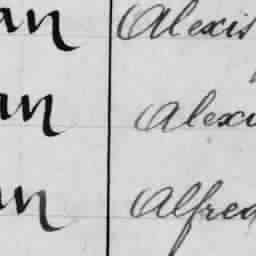 an Alexis
an Alexi
an Alfred